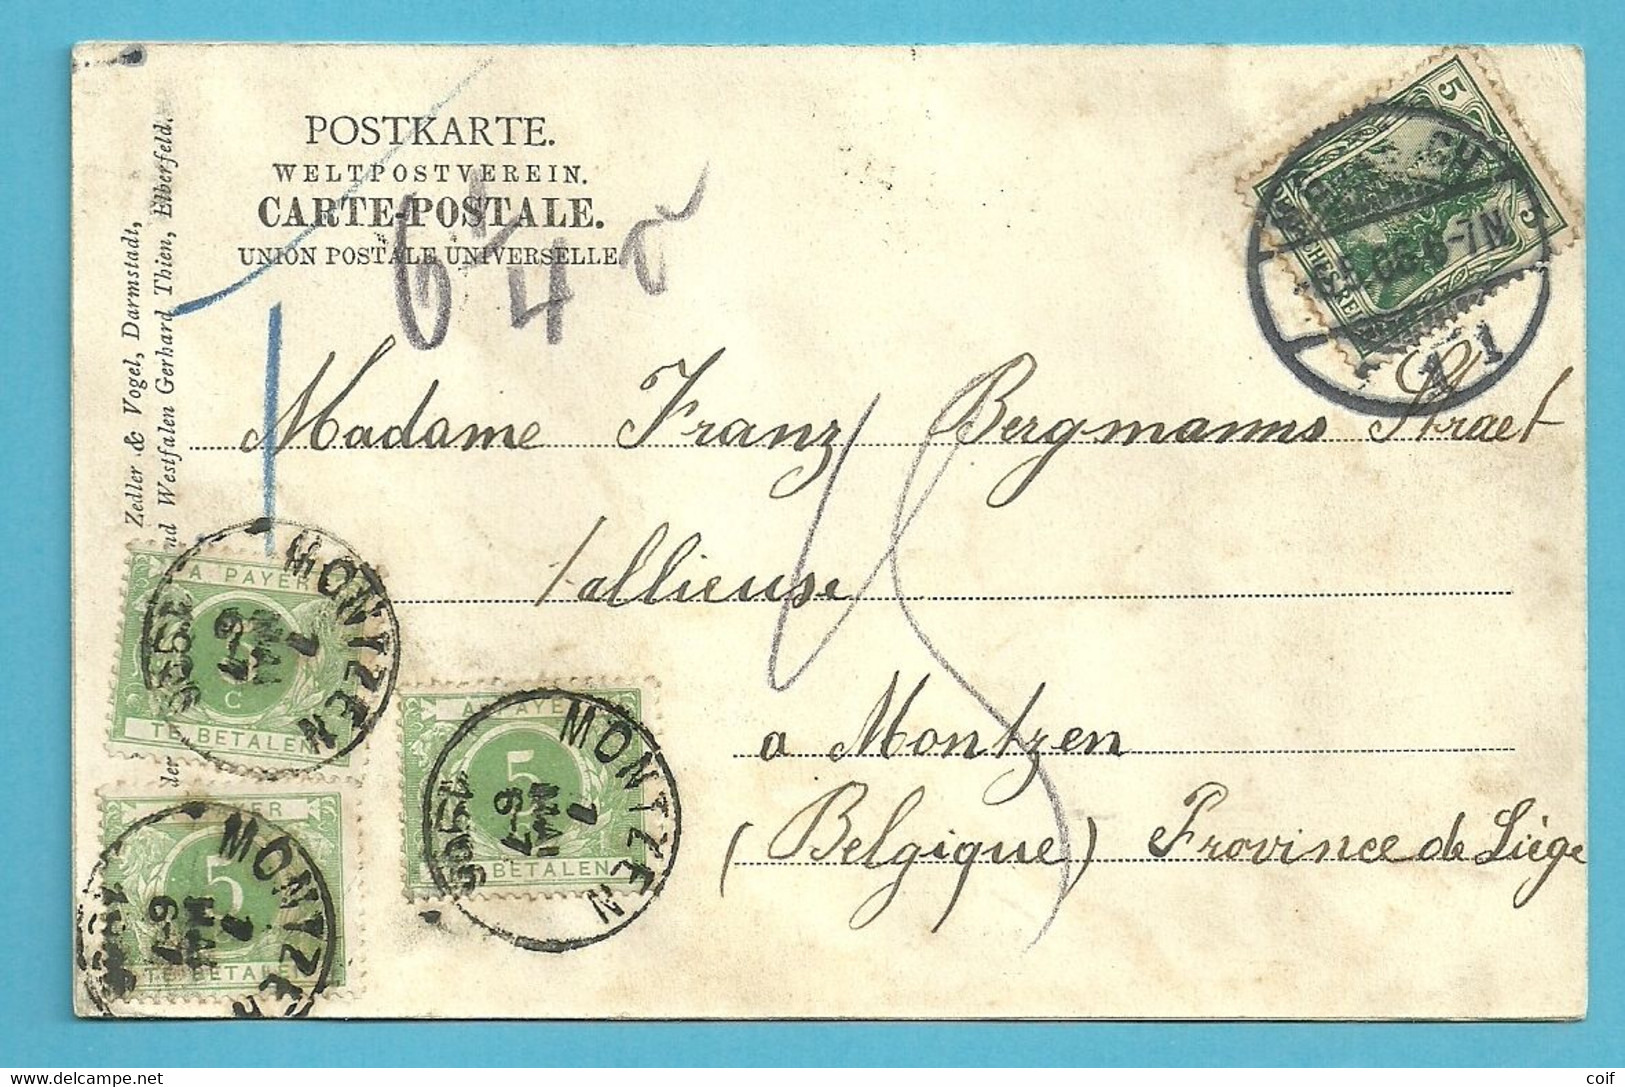 POSTKARTE.
WELTPOSTVEREIN.
CARTE-POSTALE.
UNION POSTALE UNIVERSELLE.
Zedler & Vogel, Darmstadt,
nd Westfalen Gerhard Thien, Elberfeld.
5
5
6-7N
1
T
Madame Franz Bergmanns Straet
tallieuse
a Montzen
(Belgique) Province de Liège
15
A PAYER
5
C
TE BETALEN
MONTZEN
6-7
MAI
1
1906
A PAYER
5
BETALEN
MONTZEN
6-7
MAI
1
1906
PAYER
5
TE BETALEN
MONTZEN
6-7
MAI
1
coif
www.delcampe.net